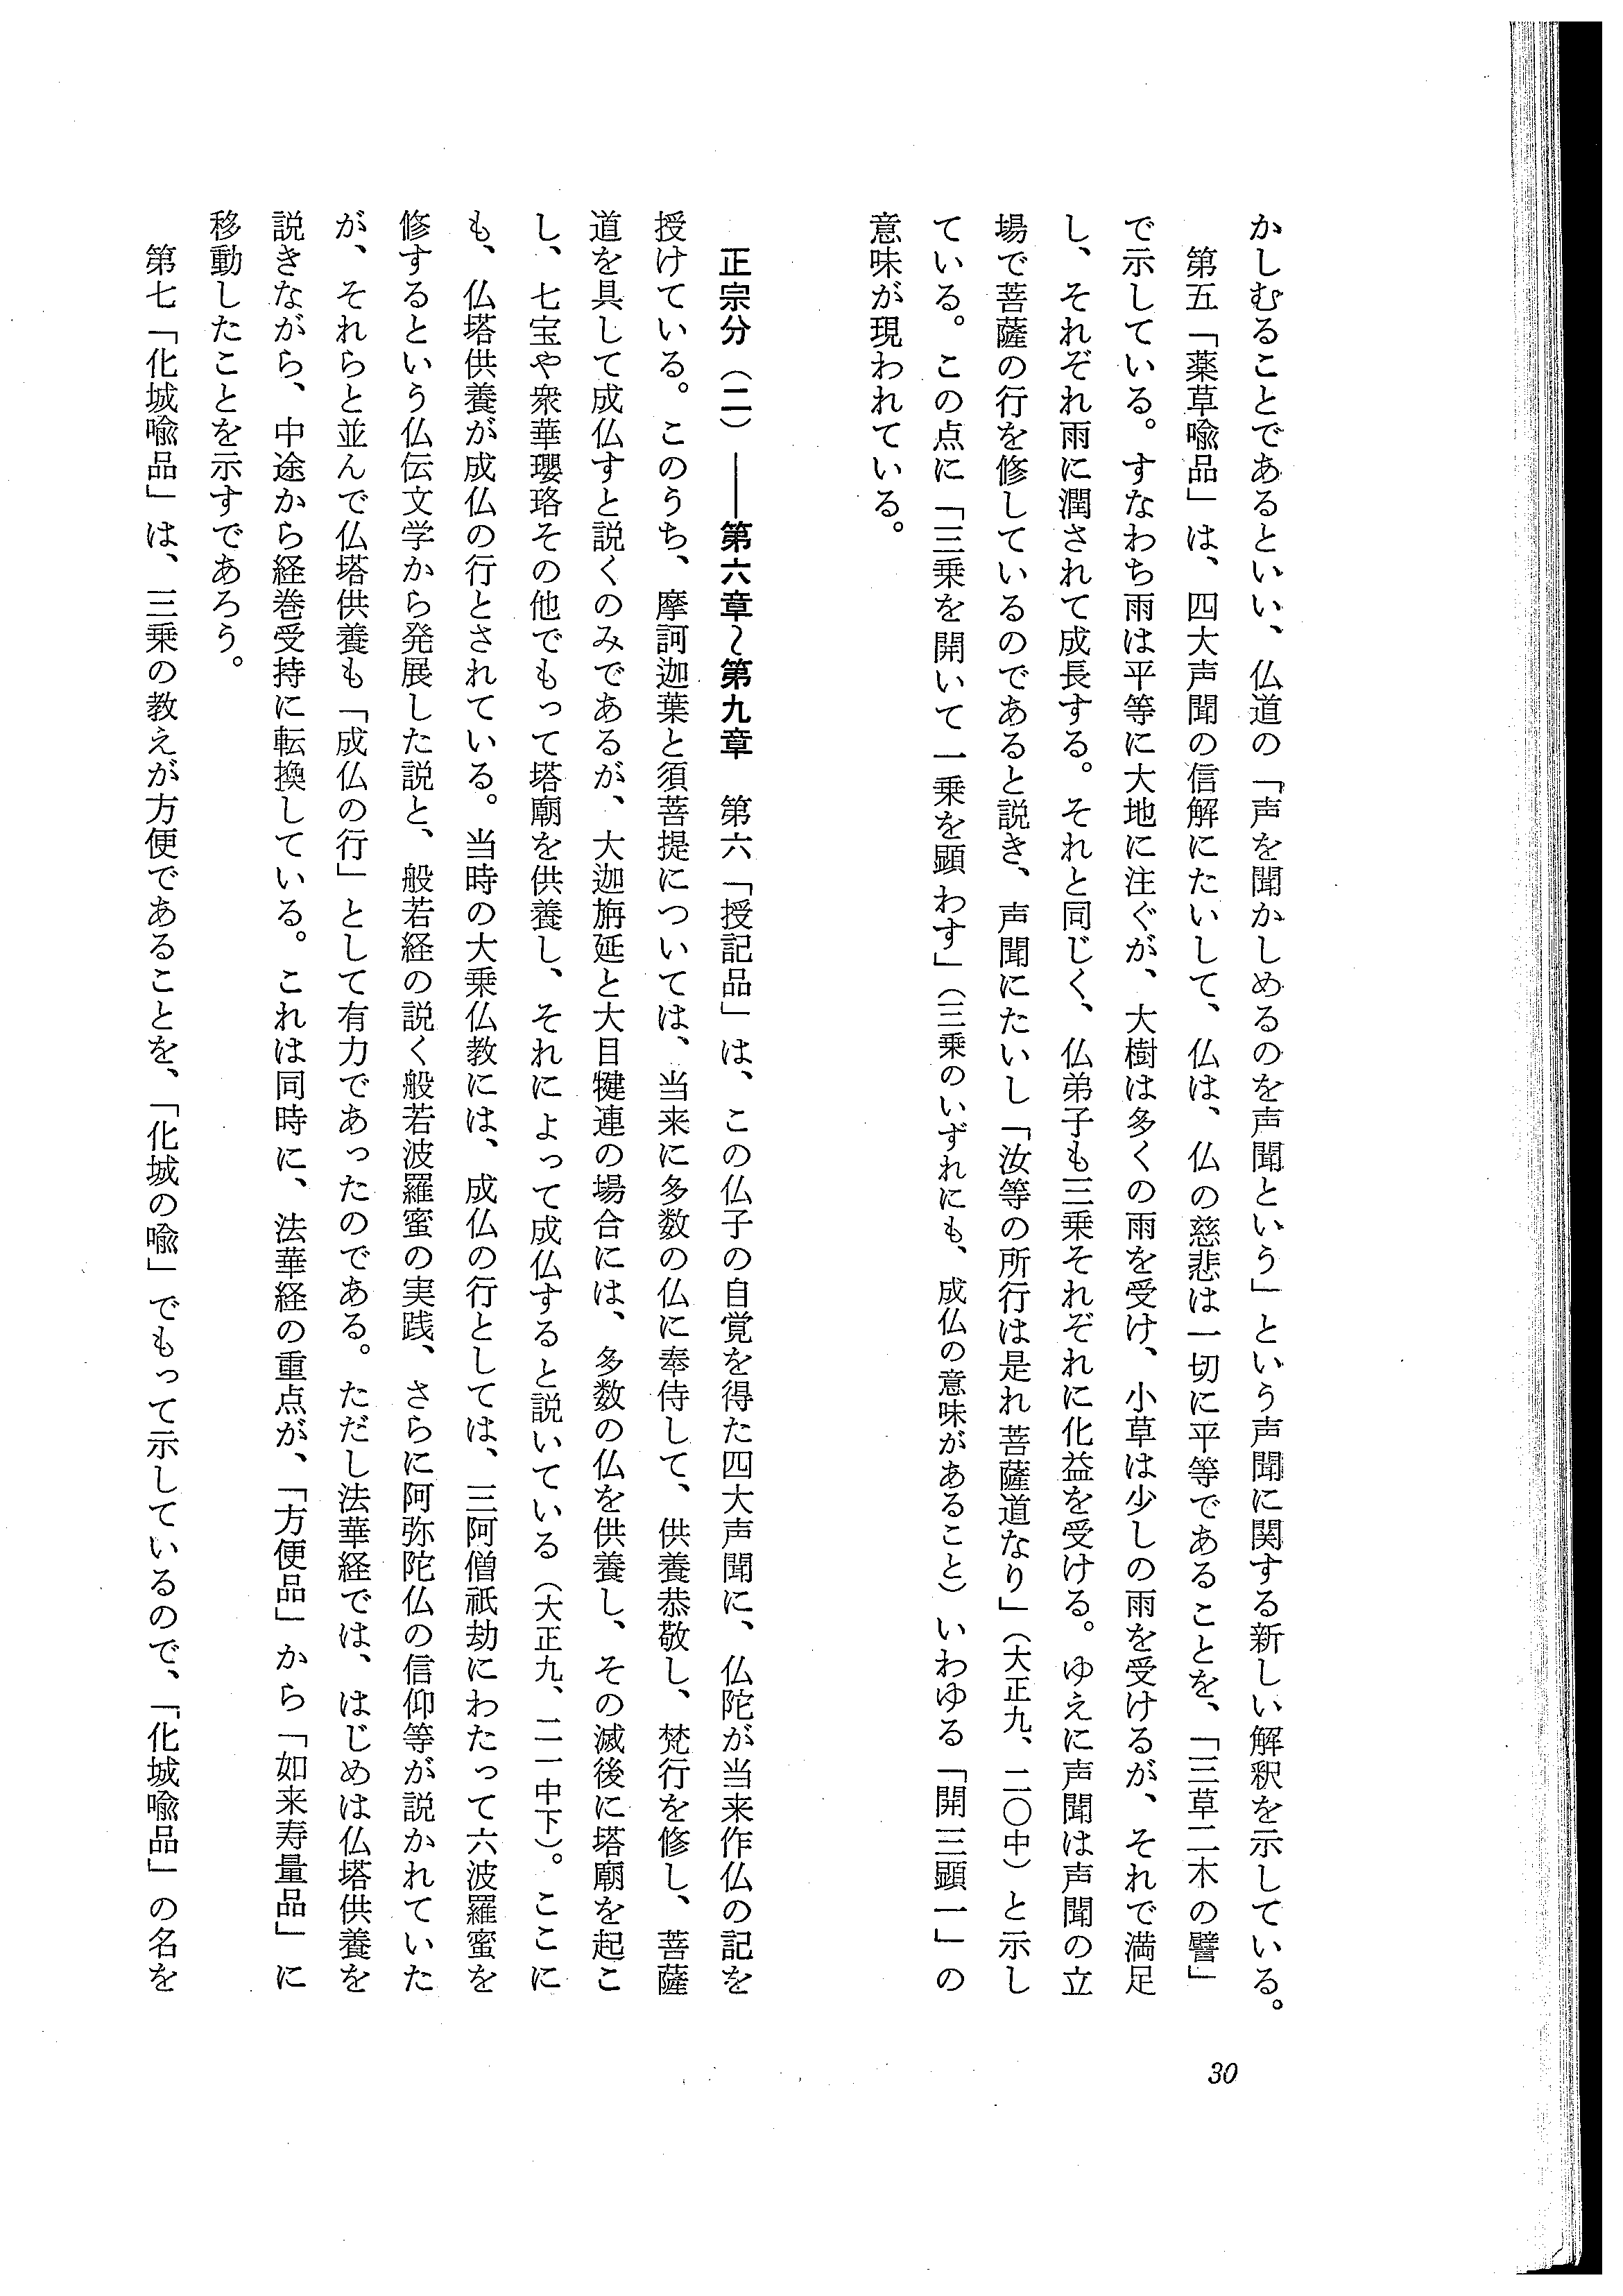 かしむることであるといい、仏道の「声を聞かしめるのを声聞という」という声聞に関する新しい解釈を示している。
第五「薬草喩品」は、四大声聞の信解にたいして、仏は、仏の慈悲は一切に平等であることを、「三草二木の譬」
で示している。すなわち雨は平等に大地に注ぐが、大樹は多くの雨を受け、小草は少しの雨を受けるが、それで満足
し、それぞれ雨に潤されて成長する。それと同じく、仏弟子も三乗それぞれに化益を受ける。ゆえに声聞は声聞の立
場で菩薩の行を修しているのであると説き、声聞にたいし「汝等の所行は是れ菩薩道なり」（大正九、二〇中）と示し
ている。この点に「三乗を開いて一乗を顕わす」（三乗のいずれにも、成仏の意味があること）いわゆる「開三顕一」の
意味が現われている。
正宗分（二）――第六章〜第九章　第六「授記品」は、この仏子の自覚を得た四大声聞に、仏陀が当来作仏の記を
授けている。このうち、摩訶迦葉と須菩提については、当来に多数の仏に奉侍して、供養恭敬し、梵行を修し、菩薩
道を具して成仏すと説くのみであるが、大迦旃延と大目犍連の場合には、多数の仏を供養し、その滅後に塔廟を起こ
し、七宝や衆華瓔珞その他でもって塔廟を供養し、それによって成仏すると説いている（大正九、二一中下）。ここに
も、仏塔供養が成仏の行とされている。当時の大乗仏教には、成仏の行としては、三阿僧祇劫にわたって六波羅蜜を
修するという仏伝文学から発展した説と、般若経の説く般若波羅蜜の実践、さらに阿弥陀仏の信仰等が説かれていた
が、それらと並んで仏塔供養も「成仏の行」として有力であったのである。ただし法華経では、はじめは仏塔供養を
説きながら、中途から経巻受持に転換している。これは同時に、法華経の重点が、「方便品」から「如来寿量品」に
移動したことを示すであろう。
第七「化城喩品」は、三乗の教えが方便であることを、「化城の喩」でもって示しているので、「化城喩品」の名を
30